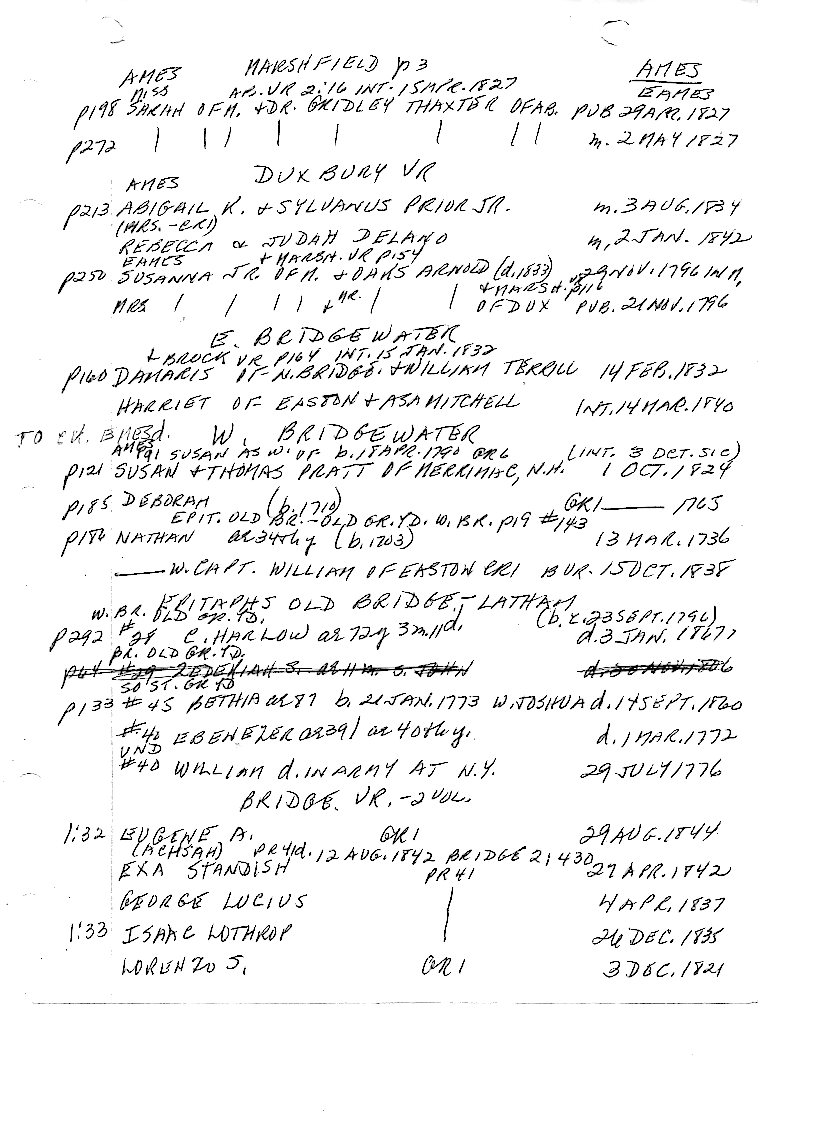 AMES MARSHFIELD p3 AMES
MISS AB. VR 2:16 INT. 15 APR. 1827 EAMES
p198 SARAH OF M. + DR. GRIDLEY THAXTER OF AB. PUB 29 APR. 1827
p272 | | | | | | | | m. 2 MAY 1827
AMES DUXBURY VR
p213 ABIGAIL K. + SYLVANUS PRIOR JR. m. 3 AUG. 1834
(MRS. - CR1)
REBECCA & JUDAH DELANO m. 2 JAN. 1842
EAMES + MARSH. VR p.54
p250 SUSANNA JR. OF M. + OAKS ARNOLD (d. 1833) 29 NOV. 1796 IN M,
+ MARSH. p116
MRS | | | | + MR. | | OF DUX PUB. 21 NOV. 1796
E. BRIDGEWATER
+ BROCK VR P164 INT. 15 JAN. 1832
p160 DAMARIS OF N. BRIDGE. + WILLIAM TERRILL 14 FEB. 1832
HARRIET OF EASTON + ASA MITCHELL INT. 14 MAR. 1840
W. BRIDGEWATER
AMES SUSAN AS W. OF b. 18 APR. 1790 GR6 (INT. 3 OCT. SIC)
p121 SUSAN + THOMAS PRATT OF MERRIMAC, N.H. 1 OCT. 1824
p185 DEBORAH (b. 1710) GR1 1765
EPIT. OLD BR. - OLD GR. YD. W. BR. p19 #143
NATHAN ae 34th y (b. 1703) 13 MAR. 1736
W. CAPT. WILLIAM OF EASTON CR1 BUR. 15 OCT. 1838
EPITAPHS OLD BRIDGE, - LATHAM
W. BR. OLD GR. YD. (b. c. 23 SEPT. 1796)
p292 #28 C. HARLOW ae 72y 3m 11d. d. 3 JAN. 1867
BR. OLD GR. YD.
p64 #29 ZEDEKIAH S. ae S. JOHN d. 30 NOV. 1806
SO ST. GR YD
p133 #45 BETHIA ae 87 b. 21 JAN. 1773 W. JOSHUA d. 14 SEPT. 1860
#40 EBENEZER ae 39 / ae 40th y. d. 1 MAR. 1772
UND
#40 WILLIAM d. IN ARMY AT N.Y. 29 JULY 1776
BRIDGE. VR. - 2 VOL.
1:32 EUGENE A. GR1 29 AUG. 1844
(ACHSAH) PR41 d. 12 AUG. 1842 BRIDGE 2:430
EXA STANDISH PR41 27 APR. 1842
GEORGE LUCIUS | 4 APR. 1837
1:33 ISAAC LOTHROP | 26 DEC. 1835
LORENZO S. GR1 3 DEC. 1821